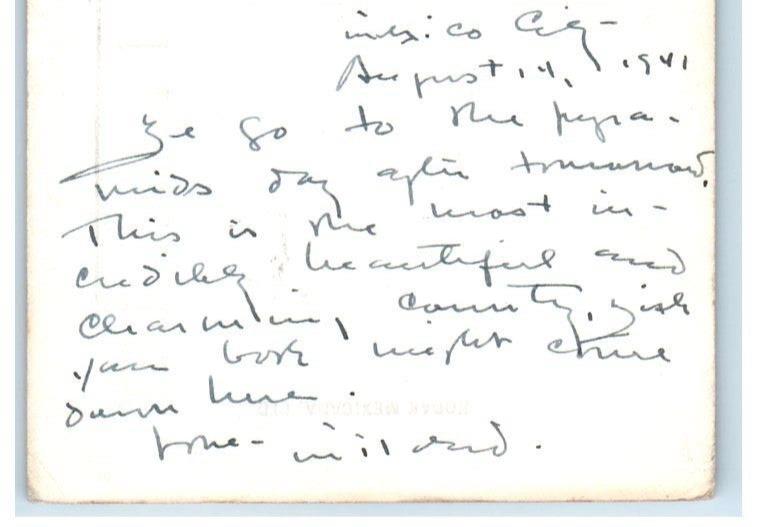 Mexico City -
August 14, 1941
We go to the pyra-
mids day after tomorrow.
This is the most in-
credibly beautiful and
charming country, wish
you both might come
down here.
Love - Millard.
KODAK MEXICANA LTD